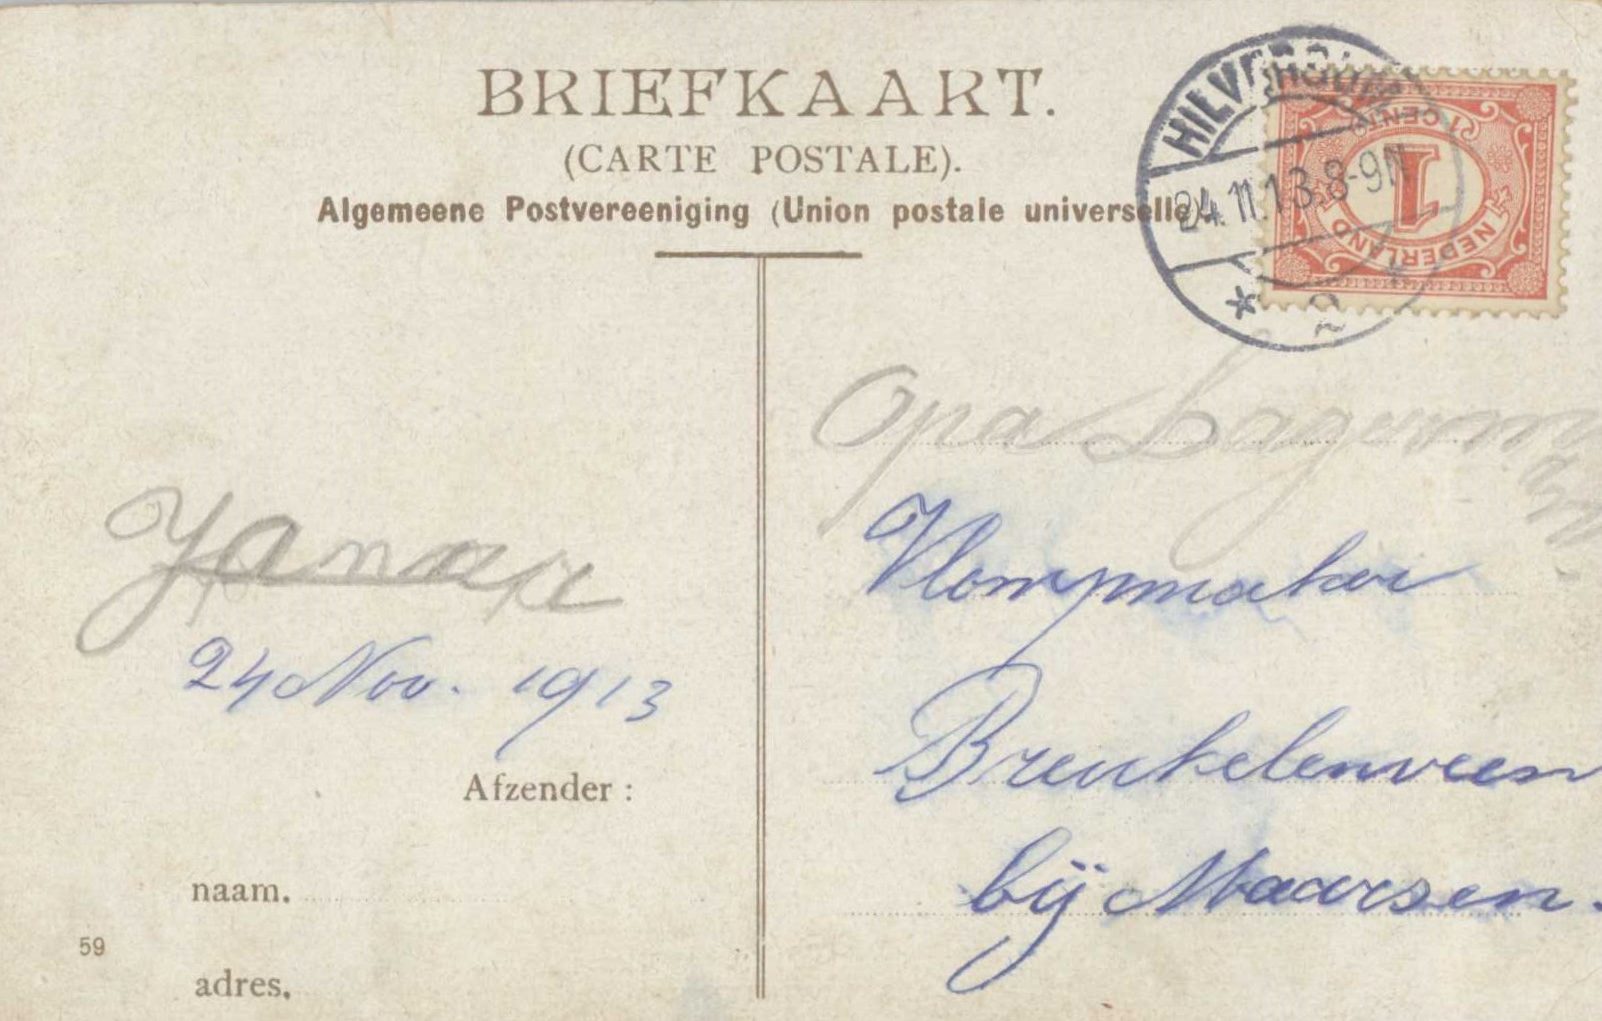 BRIEFKAART.
(CARTE POSTALE).
Algemeene Postvereeniging (Union postale universelle).
HILVERSUM
24.11.13.8-9N
1 CENT
1
NEDERLAND
Opa
Klompmaker
Breukelenveen
bij Maarsen.
24 Nov. 1913
Afzender :
naam.
59
adres.